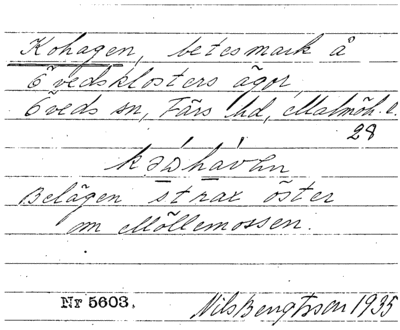 Kohagen, betesmark å
Övedsklosters ägor,
Öveds sn, Färs hd, Malmöh. l.
28
Belägen strax öster
om Möllemossen.
Nr 5603.
Nils Bengtsson 1935